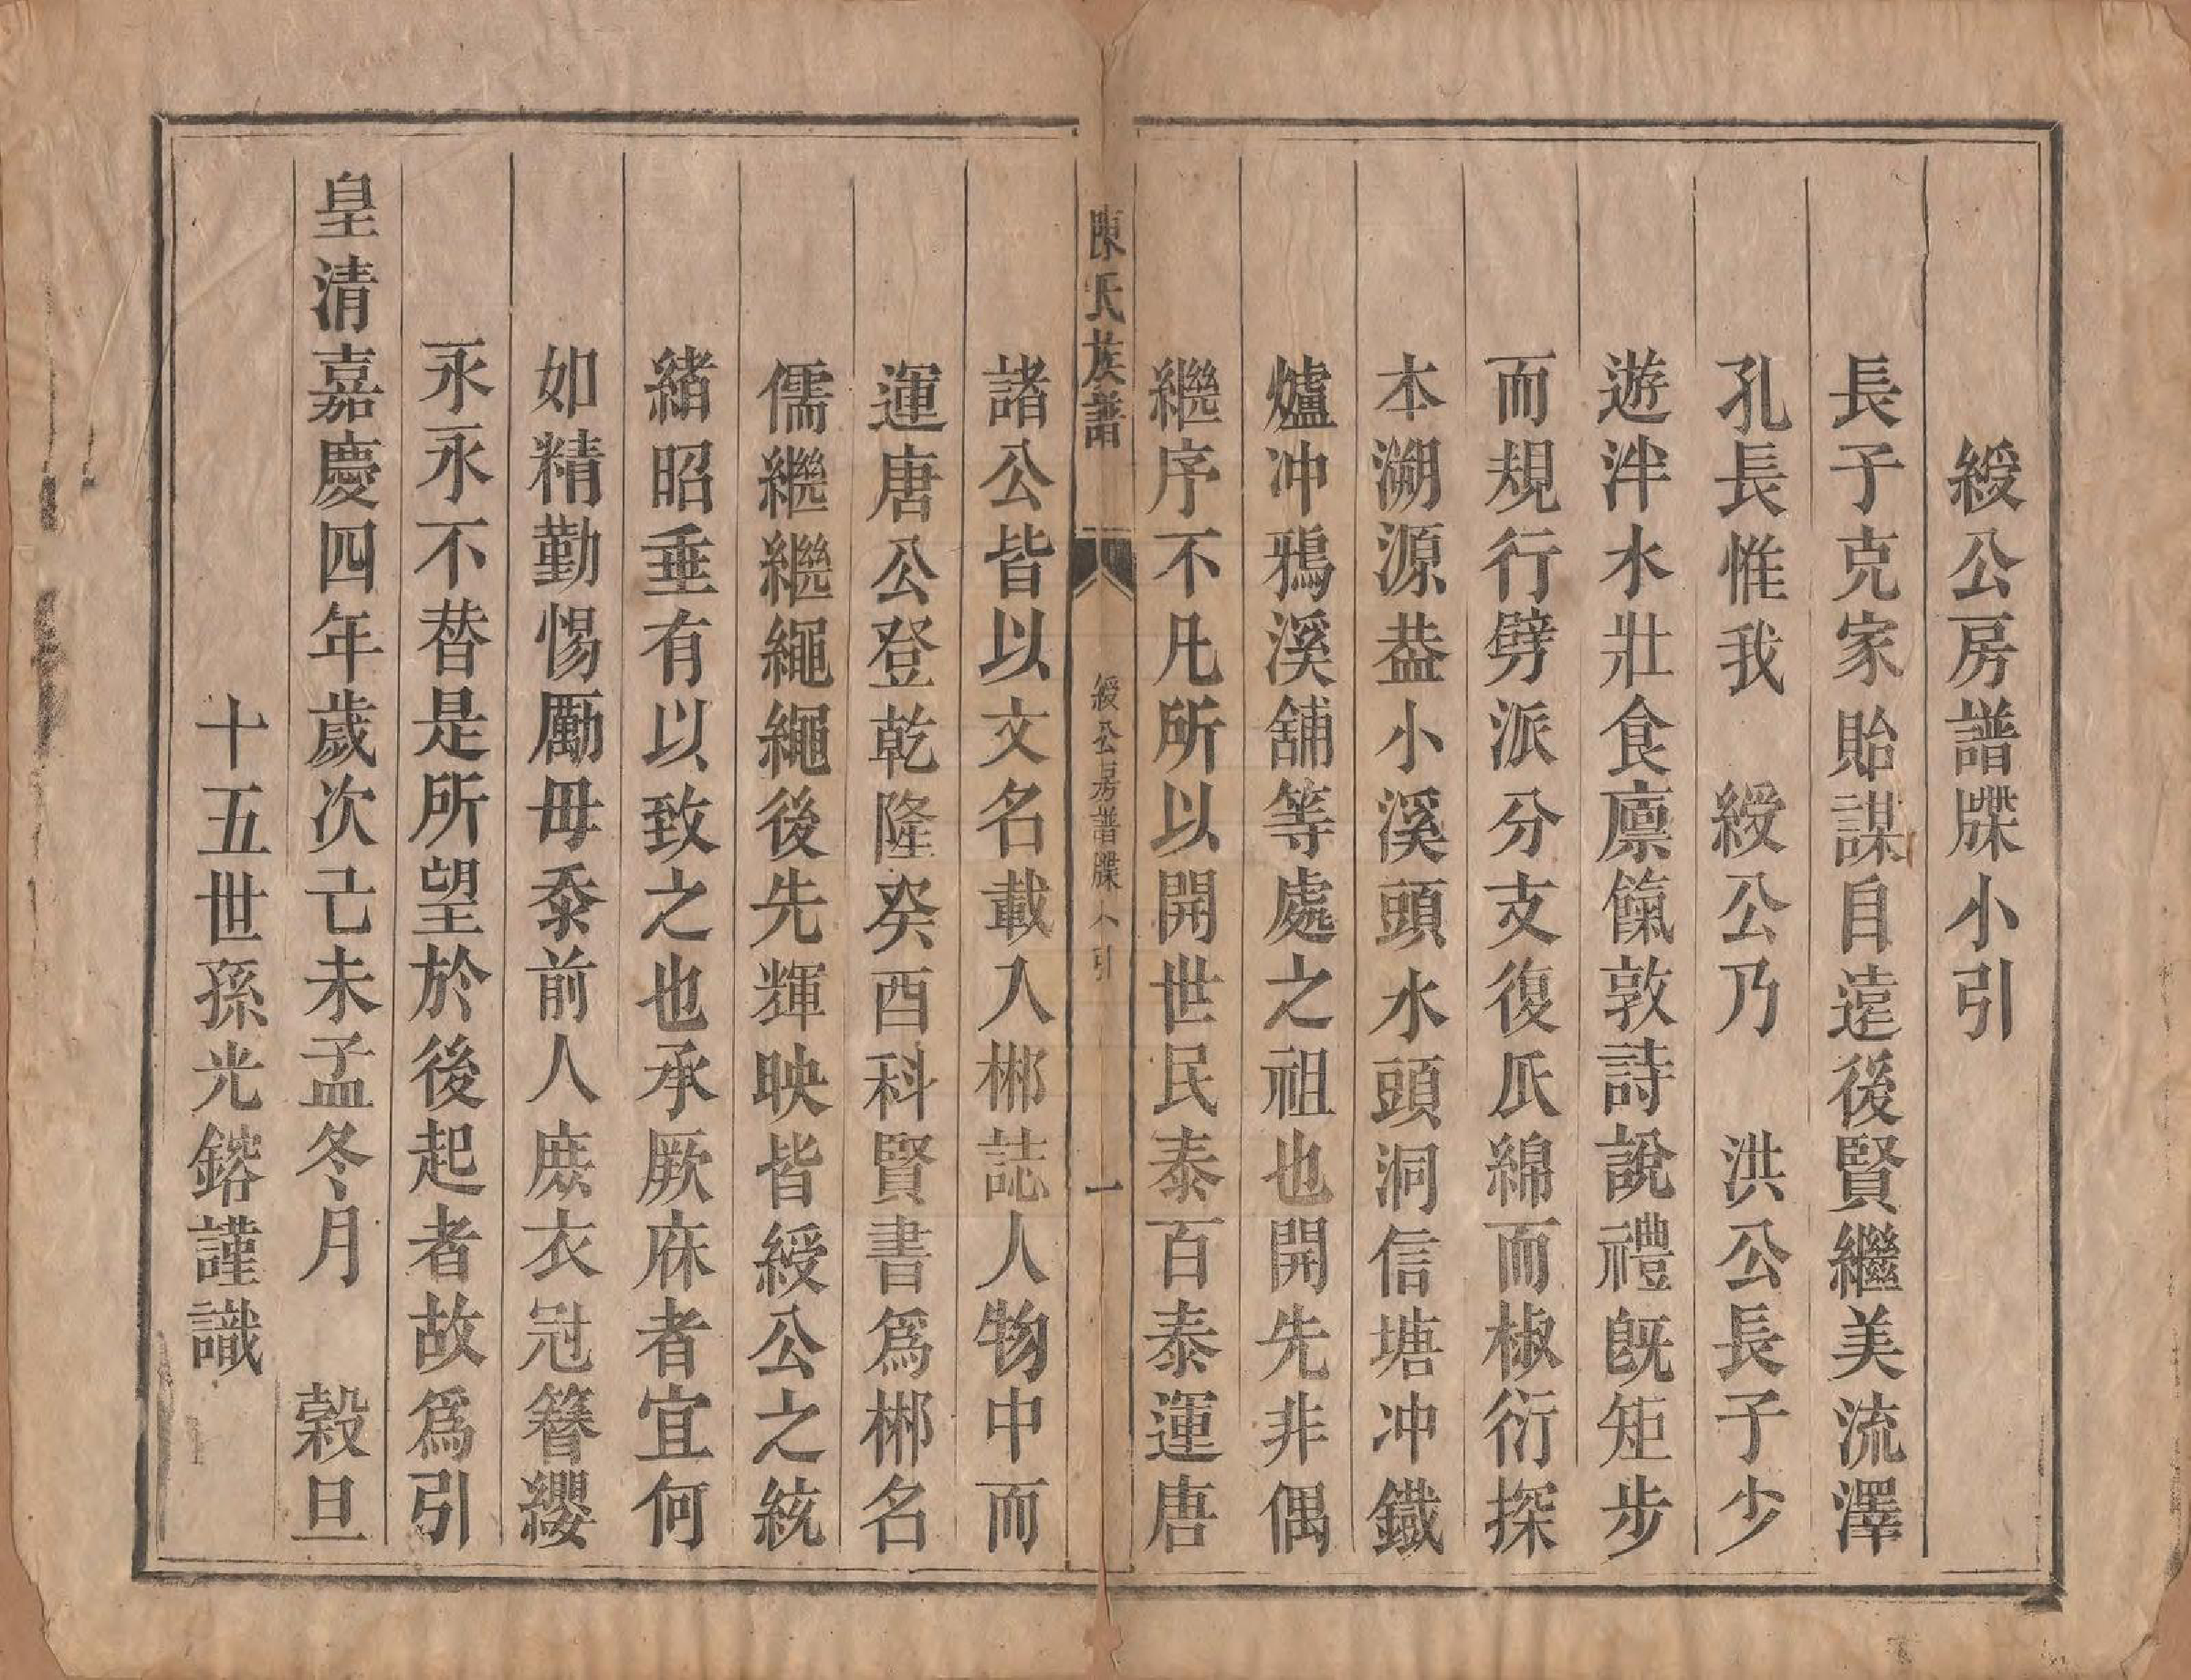 綬公房譜牒小引
長子克家貽謀自遠後賢繼美流澤
孔長惟我　綬公乃　洪公長子少
遊泮水壯食廩餼敦詩說禮旣矩步
而規行劈派分支復瓜綿而椒衍探
本溯源葢小溪頭水頭洞信塘冲鐵
爐冲鴉溪舖等處之祖也開先非偶
繼序不凡所以開世民泰百泰運唐
陳氏族譜　綬公房譜牒小引　一
諸公皆以文名載入郴誌人物中而
運唐公登乾隆癸酉科賢書爲郴名
儒繼繼繩繩後先輝映皆綬公之統
緒昭垂有以致之也承厥庥者宜何
如精勤惕勵毋忝前人庶衣冠簪纓
永永不替是所望於後起者故爲引
皇清嘉慶四年歲次己未孟冬月　穀旦
十五世孫光鎔謹識